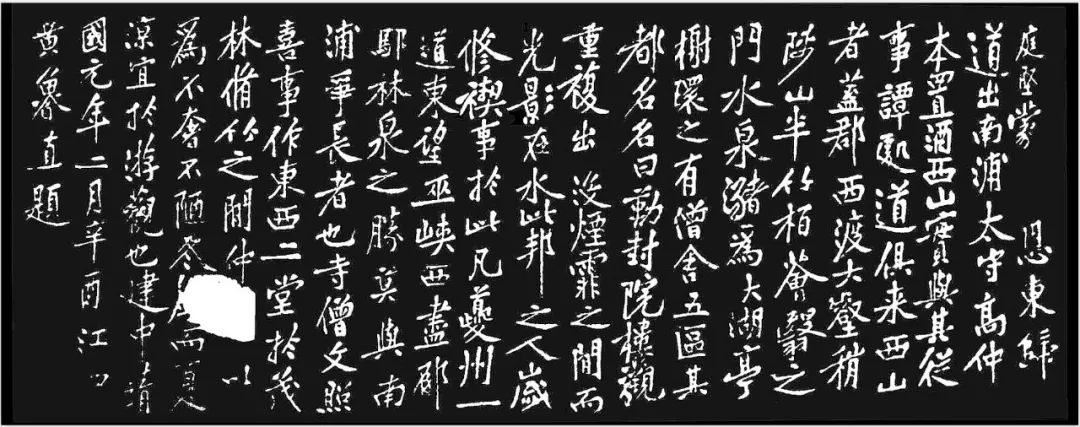 庭堅蒙 恩東歸
道出南浦太守高仲
本置酒西山實與其從
事譚處道俱来西山
者蓋郡西渡大壑稍
陟山半竹柏薈翳之
門水泉瀦為大湖亭
榭環之有僧舍五區其
都名名曰勤封院樓觀
重複出没煙霏之間而
光影在水此邦之人歲
修禊事於此凡夔州一
道東望巫峽西盡
林泉之勝莫與南
浦爭長者也寺僧文照
喜事作東西二堂於茂
林脩竹之間仲 以
為不奢不陋冬 而夏
涼宜於游觀也建中靖
國元年二月辛酉江
黃魯直題